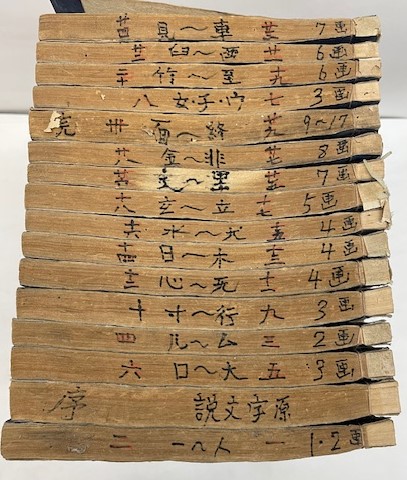 廿四 見～車 廿三 7画
廿二 臼～西 廿一 6画
二十 竹～至 十九 6画
八 女·子·宀 七 3画
完 卅 面～ 廿九 9~17
廿八 金～非 廿七 8画
廿六 ～里 廿五 7画
十八 玄～立 十七 5画
十六 水～犬 十五 4画
十四 日～木 十三 4画
十二 心～无 十一 4画
十 寸～行 九 3画
四 儿～厶 三 2画
六 口～大 五 3画
序 説文字原
二 一～人 一 1·2画